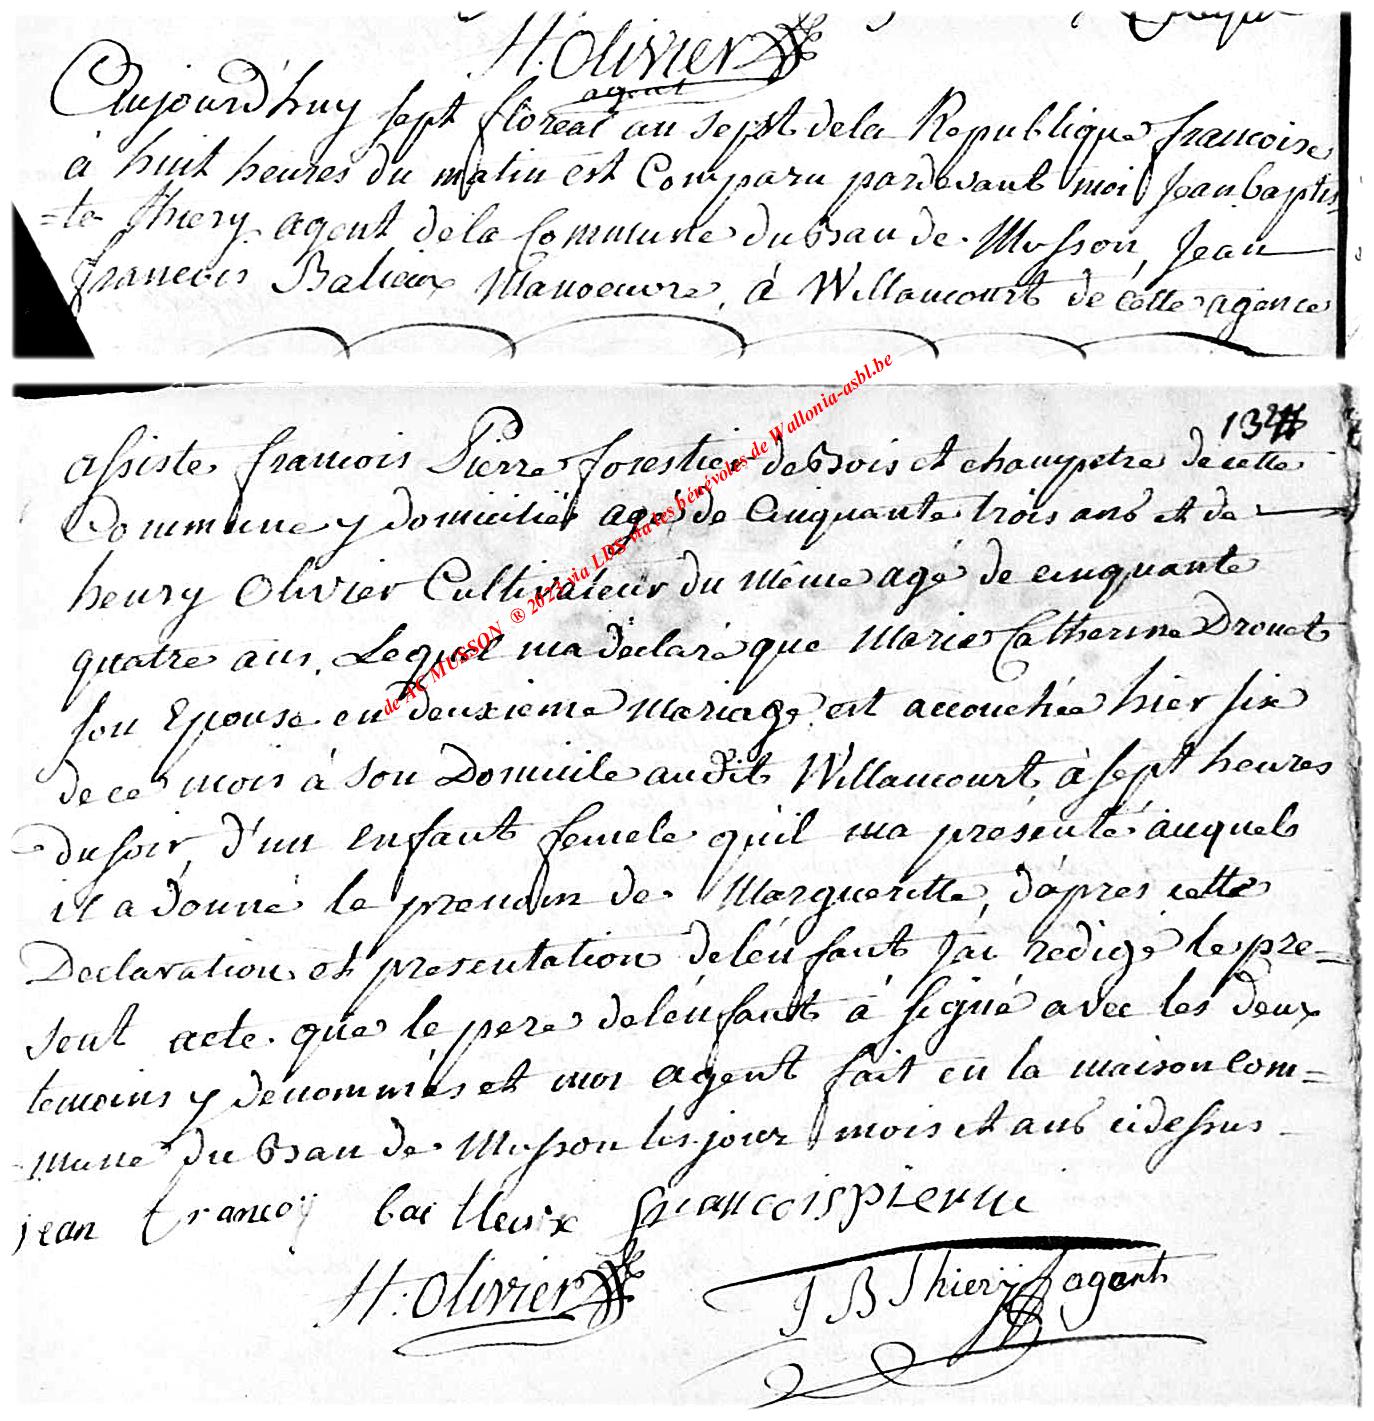 H. Olivier
agent
Aujourd'huy sept floreal an sept de la Republique francoise
à huit heures du matin est Comparu pardevant moi Jean baptis
=te thiery agent de la Commune du Ban de Musson, Jean
francois Balieux Manoeuvre, à Willancourt de cette agence
132
assisté francois Pierre forestier de Bois et champetre de cette
Commune y domicilié agé de Cinquante trois ans et de
henry Olivier Cultivateur du même agé de cinquante
quatre ans, Lequel ma declaré que Marie Catherine Drouet
son Epouse en deuxieme mariage est accouchée hier six
de ce mois à son Domicile audit Willancourt à sept heures
du soir, d'un enfant femele qu'il ma présenté auquels
il a donné le prenom de Margueritte, d'apres cette
Declaration et presentation de l'énfant j'ai redigé le pre=
sent acte que le pere de l'énfant à signé avec les deux
temoins y denommés et moi agent fait en la maison Com=
mune du Ban de Musson les jour mois et ans cidessus
jean francoij bailleux francois pierre
H. Olivier
J B Thiery agent
de AC MUSSON ® 2023 via LDS via les bénévoles de Wallonia-asbl.be